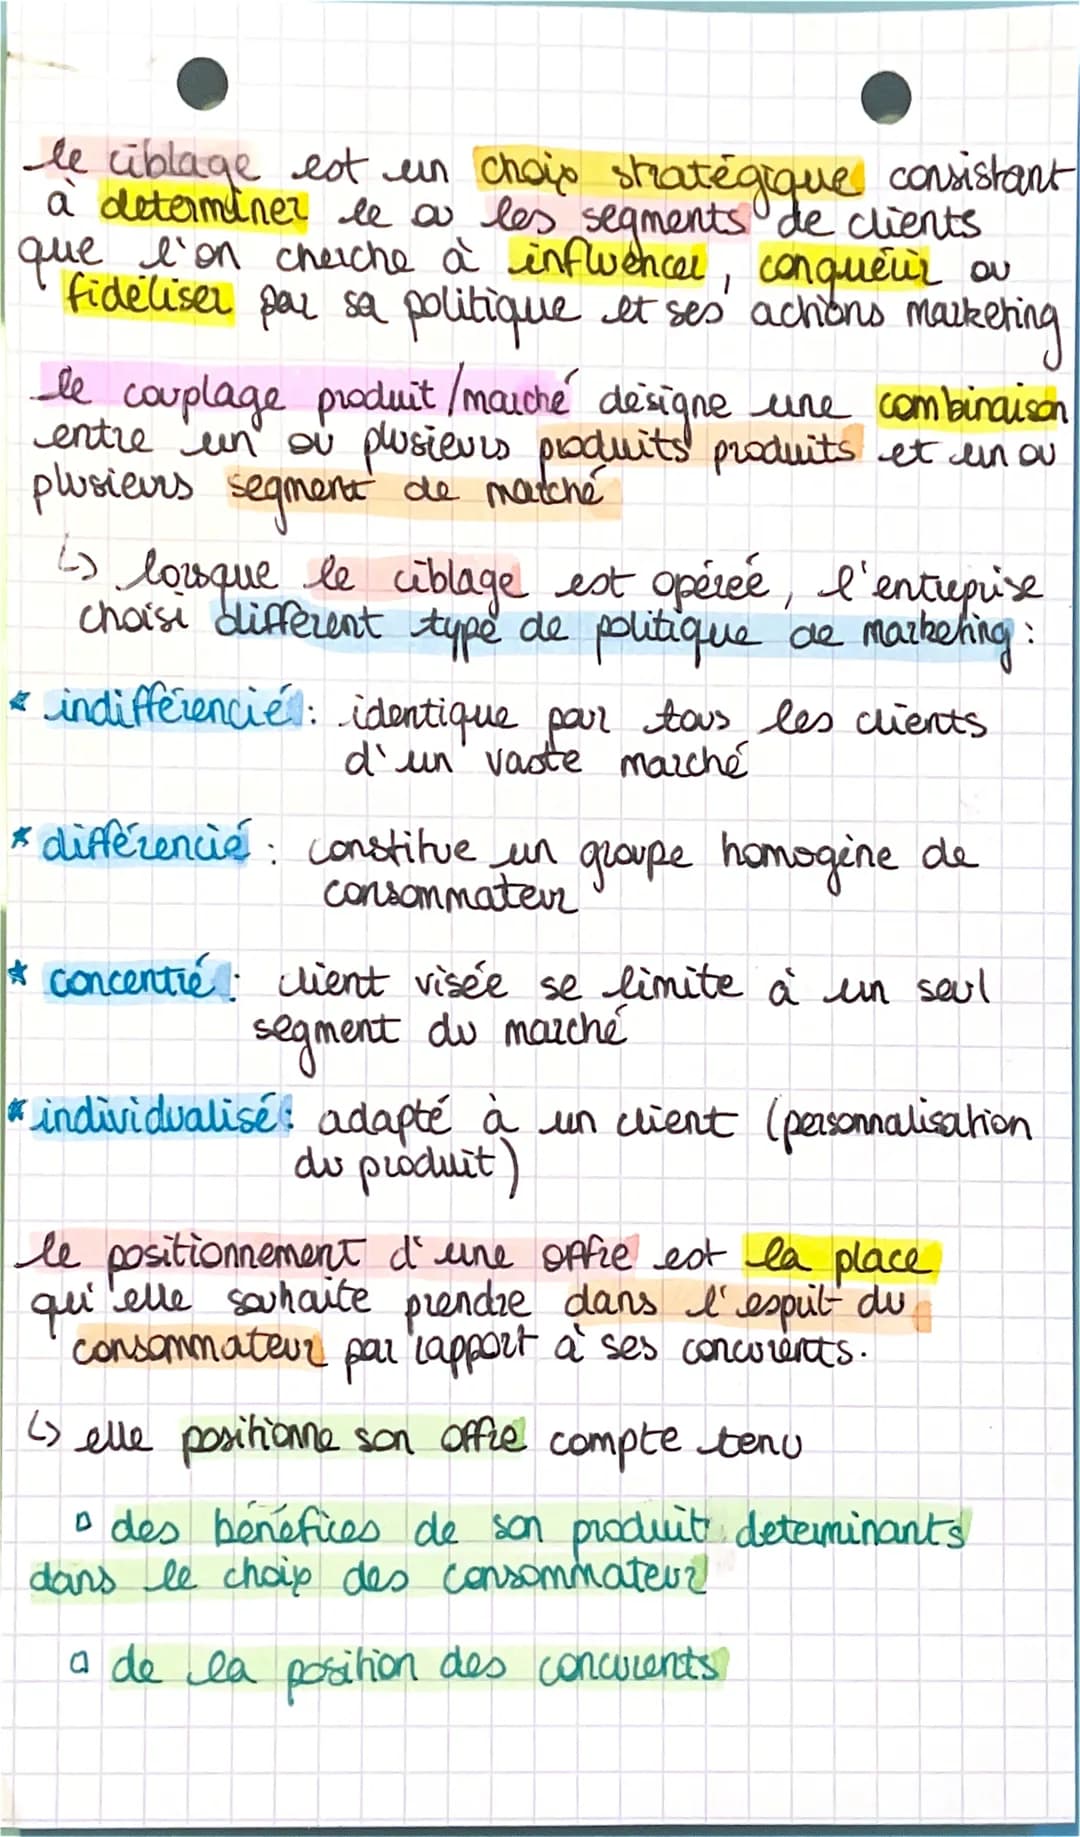 le ciblage est un choix stratégique consistant
à determiner le ou les segments de clients
que l'on cherche à influencer, conquérir ou
fidéliser par sa politique et ses actions marketing
le couplage produit/marché désigne une combinaison
entre un ou plusieurs produits produits et un ou
plusieurs segment de marché
↳ lorsque le ciblage est opéréé, l'entreprise
choisi différent type de politique de marketing :
* indifférencié : identique pour tous les clients
d'un vaste marché
* différencié : constitue un groupe homogène de
consommateur
* concentré : client visée se limite à un seul
segment du marché
* individualisé : adapté à un client (personnalisation
du produit)
le positionnement d'une offre est la place
qu'elle souhaite prendre dans l'esprit du
consommateur par rapport à ses concurents.
↳ elle positionne son offre compte tenu
▫ des bénéfices de son produit determinants
dans le choix des consommateur
▫ de la position des concurents